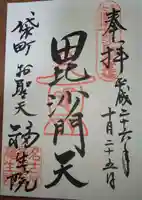 奉拝
平成二十六年
十月二十五日
毘沙門天
袋町お聖天
福生院